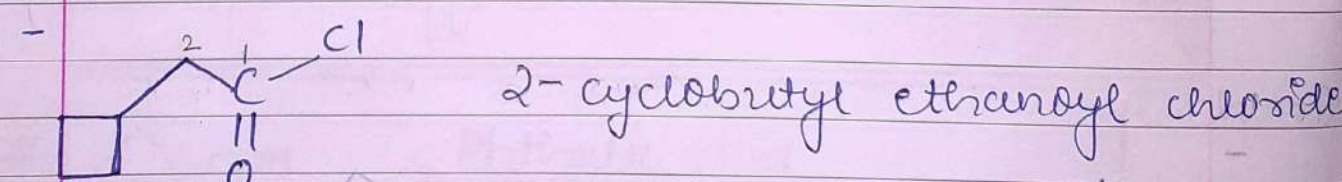 2 1 Cl
C 2-cyclobutyl ethanoyl chloride
O